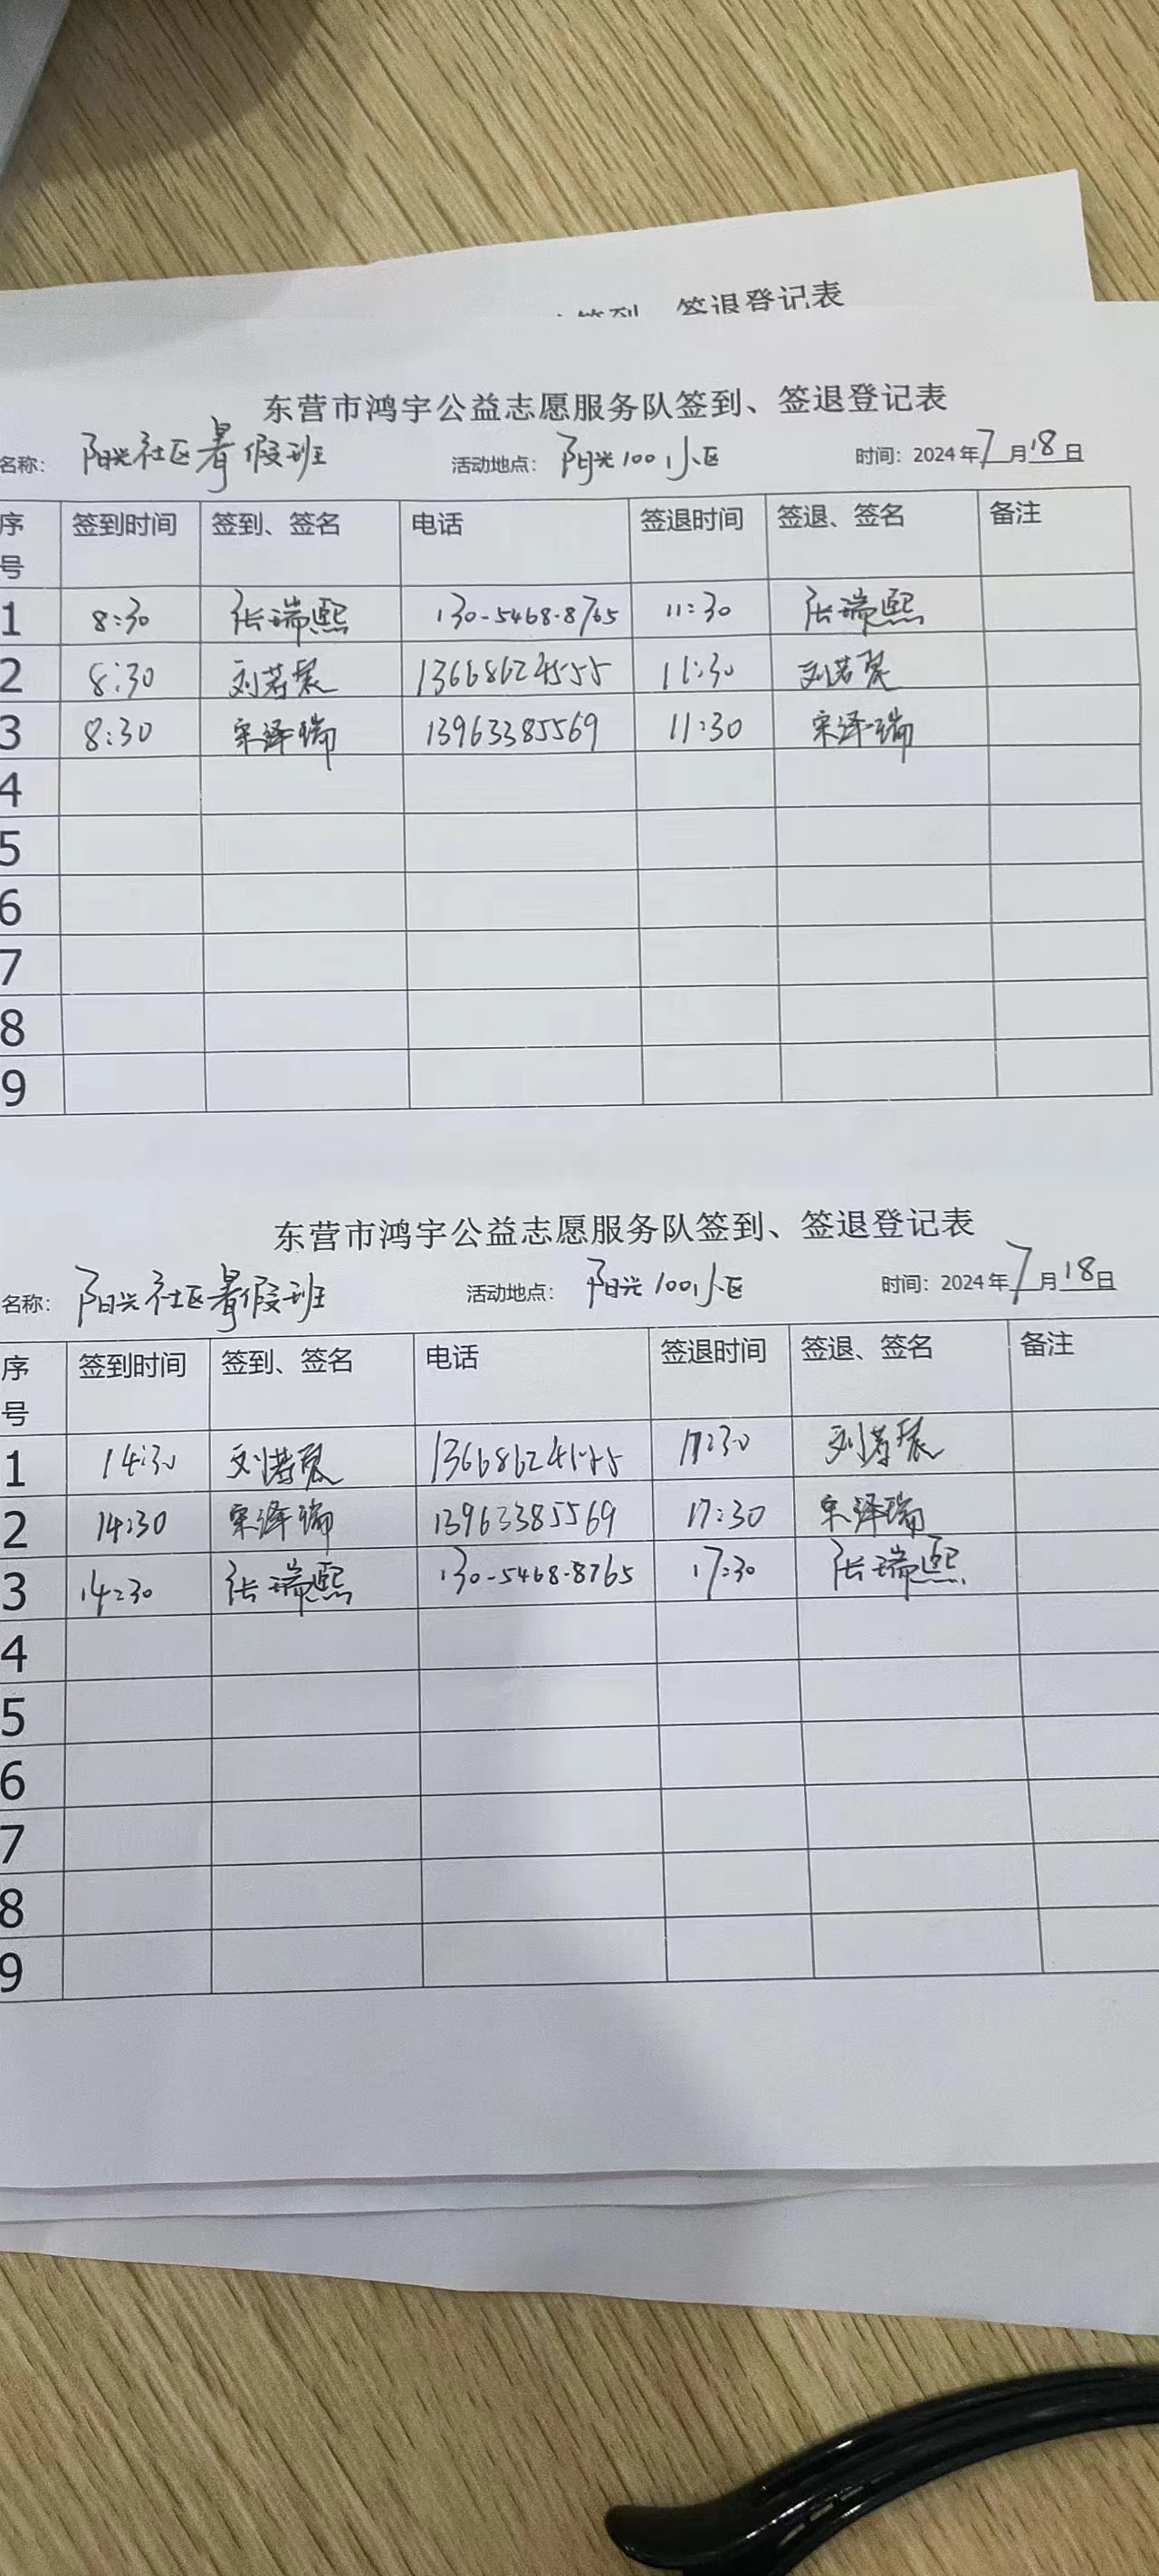 签到、签退登记表
东营市鸿宇公益志愿服务队签到、签退登记表
名称： 阳光社区暑假班 活动地点： 阳光100小区 时间：2024年7月18日
序号 签到时间 签到、签名 电话 签退时间 签退、签名 备注
1 8:30 张瑞熙 130-5468-8765 11:30 张瑞熙
2 8:30 刘若 13668624555 11:30 刘若
3 8:30 宋泽瑞 13963385569 11:30 宋泽瑞
4
5
6
7
8
9
东营市鸿宇公益志愿服务队签到、签退登记表
名称： 阳光社区暑假班 活动地点： 阳光100小区 时间：2024年7月18日
序号 签到时间 签到、签名 电话 签退时间 签退、签名 备注
1 14:30 刘若 13668624555 17:30 刘若
2 14:30 宋泽瑞 13963385569 17:30 宋泽瑞
3 14:30 张瑞熙 130-5468-8765 17:30 张瑞熙
4
5
6
7
8
9